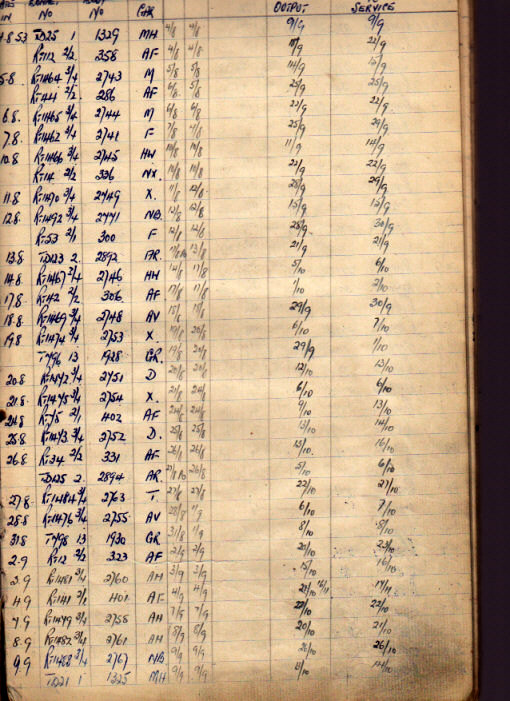 IN NO NO GAR OUTPUT SERVICE
4.8.53 TD25 1 1329 MH 4/8 4/8 9/9 9/9
RT112 2/2 358 AF 4/8 4/8 22/9
5.8 RT1464 3/4 2743 M 5/8 5/8 14/9 15/9
RT44 2/2 286 AF 6/8 5/8 25/9 25/9
6.8. RT1465 3/4 2744 M 6/8 6/8 22/9 22/9
7.8. RT1462 3/4 2741 F 7/8 25/9 29/9
10.8 RT1466 3/4 2745 HW 10/8 10/8 11/9 14/9
2/2 336 NX. 10/8 10/8 22/9 22/9
11.8 RT1470 3/4 2749 X. 11/8 12/8 28/9 29/9
12.8 RT1492 3/4 2771 NB. 12/8 12/8 15/9 15/9
RT53 2/1 300 F 12/8 12/8 28/9 30/9
13.8 TD123 2. 2892 AR. 13/8 21/9 21/9
14.8 RT1467 3/4 2746 HW 17/8 5/10 6/10
17.8 RT42 2/2 306 AF. 17/8 17/8 1/10 2/10
18.8 RT1469 3/4 2748 AV 18/8 29/9 30/9
19.8 RT1474 3/4 2753 X. 19/8 20/8 6/10 7/10
T796 13 1928 GR. 20/8 29/9 1/10
20.8 RT1472 3/4 2751 D 20/8 12/10 13/10
21.8 RT1475 3/4 2754 X. 21/8 24/8 6/10 6/10
24.8 2/1 402 AF 24/8 24/8 9/10 13/10
25.8 RT1473 3/4 2752 D. 25/8 25/8 13/10 14/10
26.8 RT34 2/2 331 AF 26/8 26/8 15/10 16/10
TD125 2. 2894 AR. 26/8 5/10 6/10
27.8 RT1484 3/4 2763 T 27/8 27/8 22/10 27/10
28.8 RT1476 3/4 2755 AV 28/8 1/9 6/10 7/10
31.8 T798 13 1930 GR 31/8 1/9 8/10 8/10
2.9 RT12 2/2 323 AF 2/9 2/9 20/10 23/10
3.9 RT1481 3/4 2760 AH 3/9 3/9 15/10 16/10
4.9 RT141 2/2 401 AF 4/9 4/9 17/11
7.9 RT1479 3/4 2758 AH 7/9 7/9 22/10 22/10
8.9 RT1482 3/4 2761 AH 8/9 8/9 20/10 21/10
9.9 RT1488 3/4 2767 NB 9/9 9/9 26/10 26/10
TD21 1 1325 MH 9/9 9/9 14/10